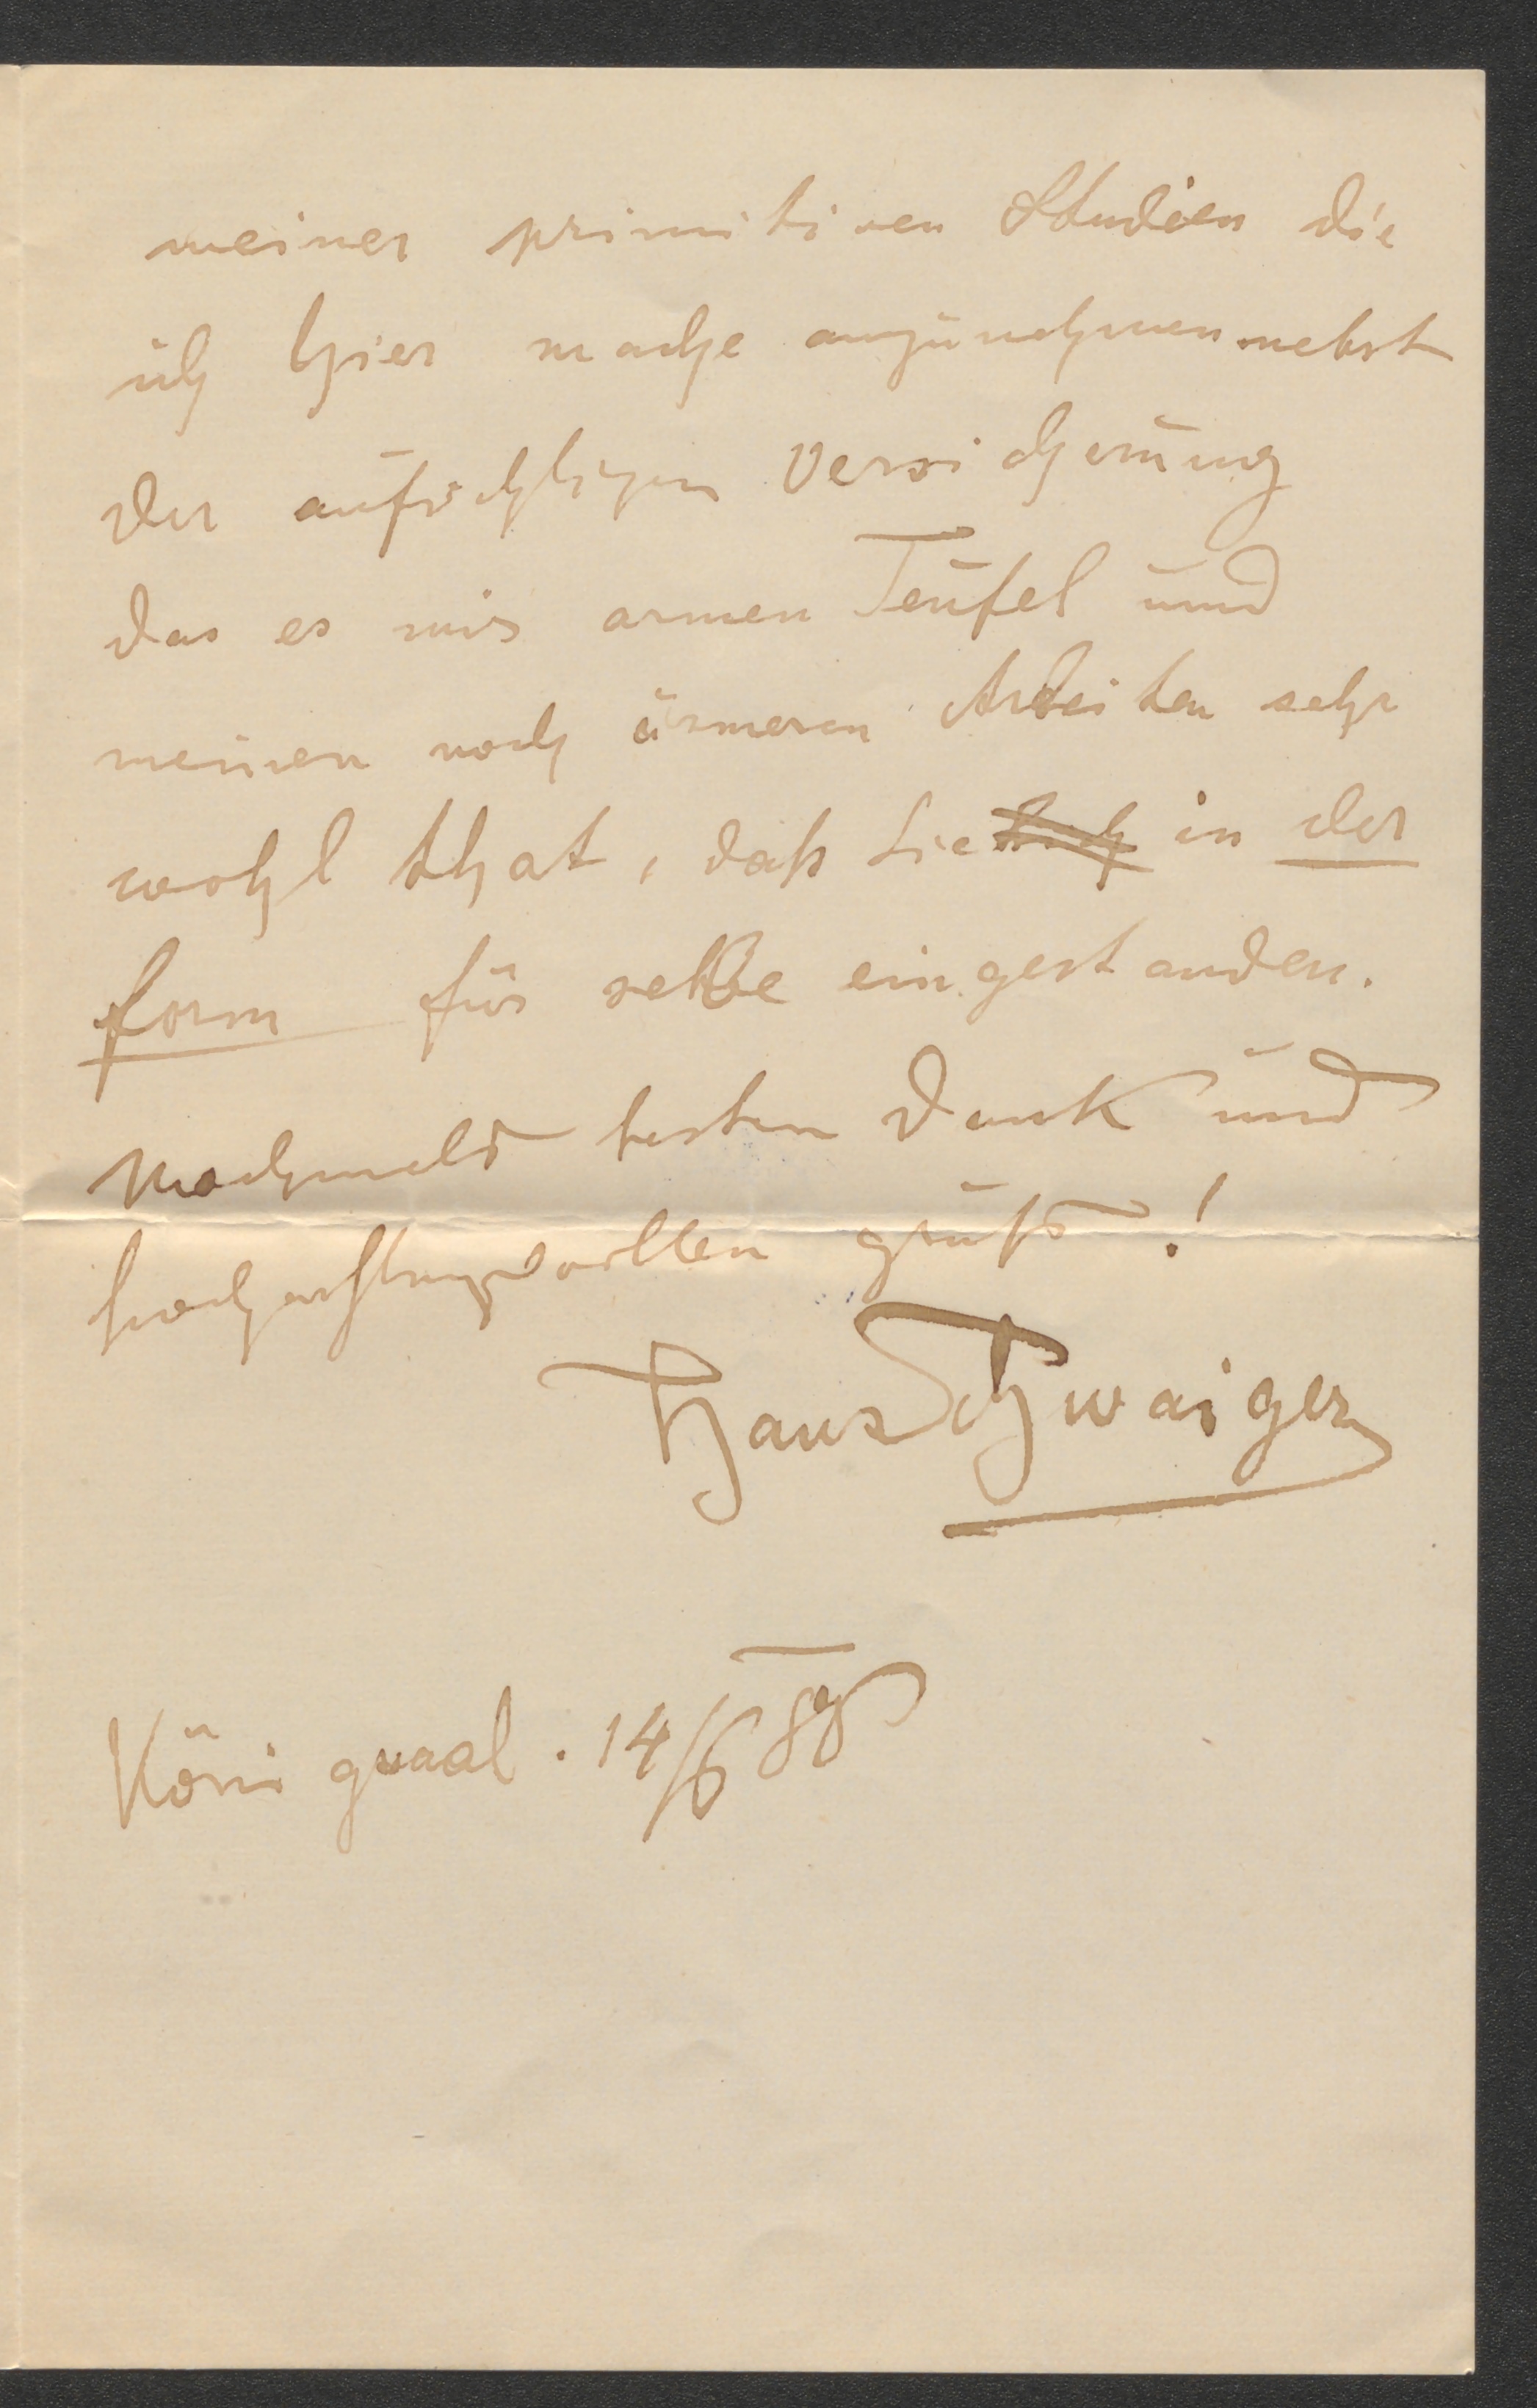 meiner primitiven Studien die
ich hier mache anzunehmen nebst
der aufrichtigen Versicherung
das es mir armen Teufel und
meinen noch ärmeren Arbeiten sehr
wohl that, daß Sie in der
form für selbe eingestanden.
Nochmals besten Dank und
hochachtungsvollen gruß!
Hans Schwaiger
Königsaal. 14/6